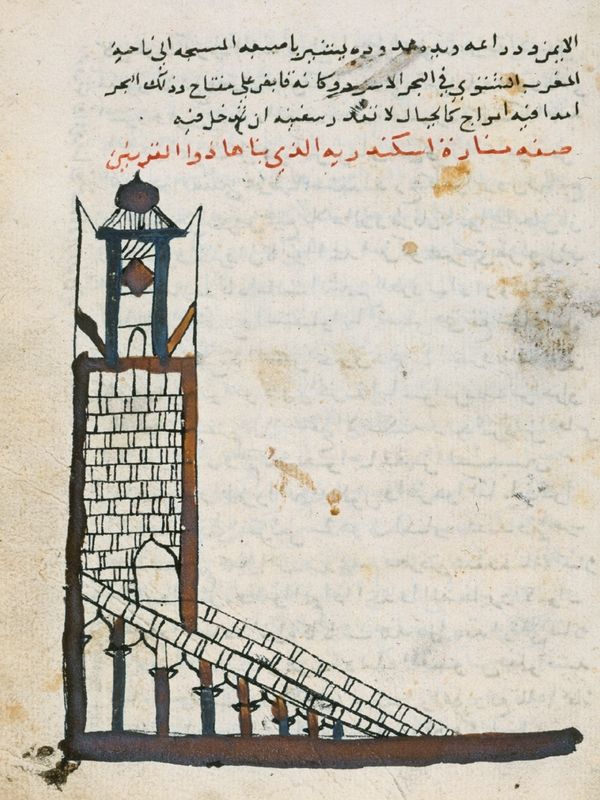 الايمن ودراعه ويده ممدوده يشير باصبعه المسبحه الى ناحية
المغرب الشتوي في البحر الاسود وكانه قابض على مفتاح وذلك البحر
امدا فيه امواج كالجبال لا تقدر سفينه ان تدخل فيه
صفه منارة اسكندريه الذي بناها ذوا القرنين